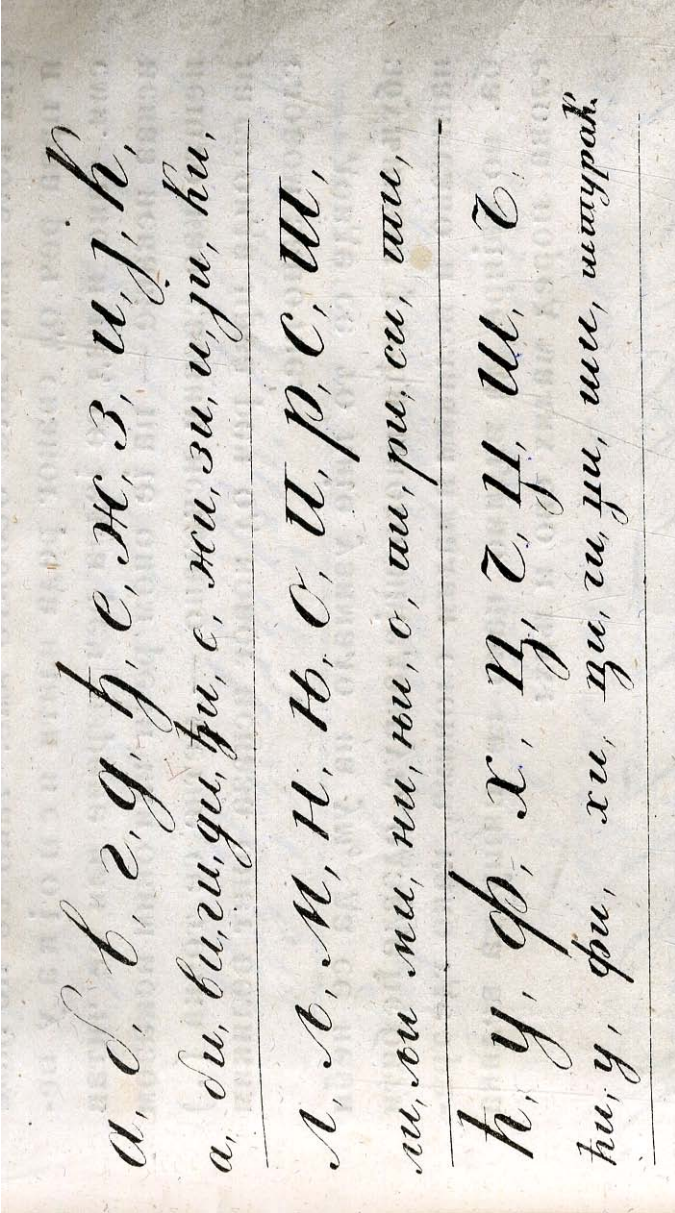 а, б, в, г, д, ђ, е, ж, з, и, ј, к,
а, би, ви, ги, ди, ђи, е, жи, зи, и, ји, ки,
л, љ, м, н, њ, о, п, р, с, т,
ли, љи ми, ни, њи, о, пи, ри, си, ти,
ћ, у, ф, х, ц, ч, џ, ш,
ћи, у, фи, хи, ци, чи, џи, ши, штурак.